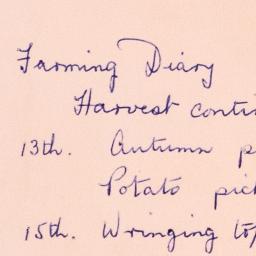 Farming Diary
Harvest
13th. Autumn
Potato
15th. Wringing